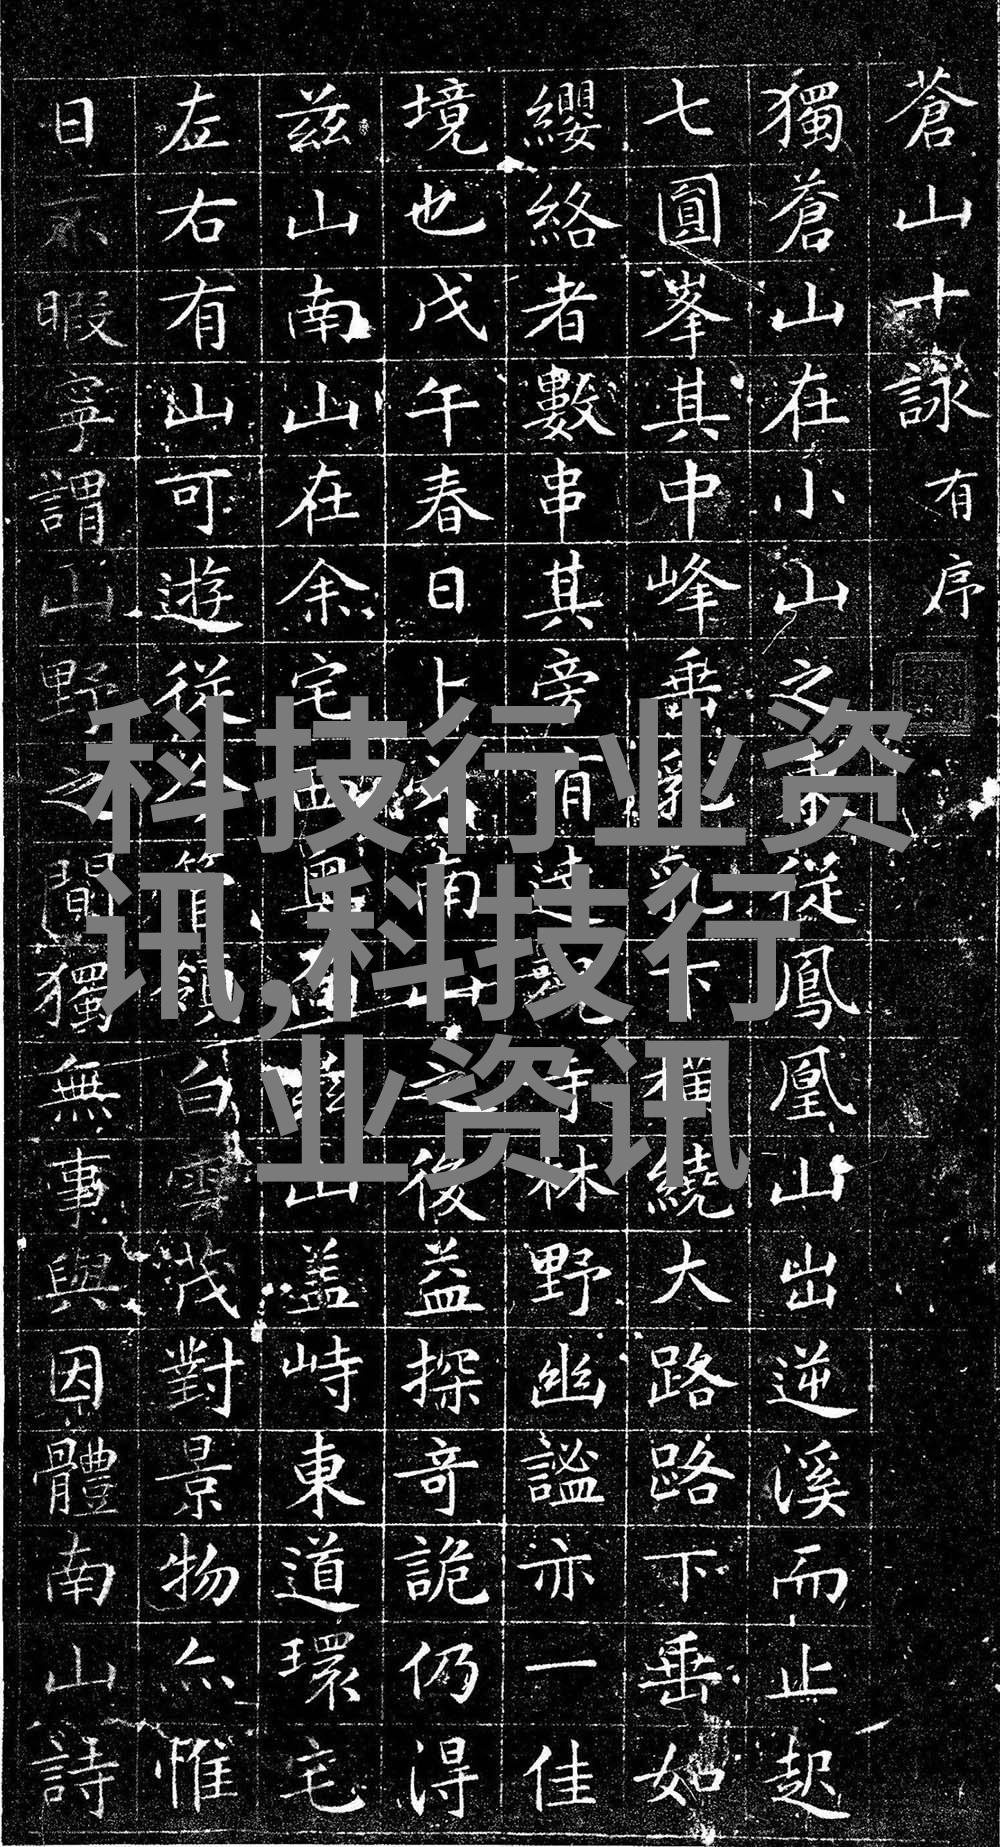 蒼山十詠 有序
獨蒼山在小山之東從鳳凰山出逆溪而止起
七圓峯其中峰垂乳乳下橫繞大路路下垂如
纓絡者數串其旁有寺林野幽謐亦一佳
境也戊午春日卜南山之後益探奇詭仍得
茲山南山在余宅西山盖峙東道環宅
左右有山可遊從管領白雲茂對景物亦惟
日不暇寧謂山野之間獨無事與因體南山詩
科技行业资
讯,科技行
业资讯